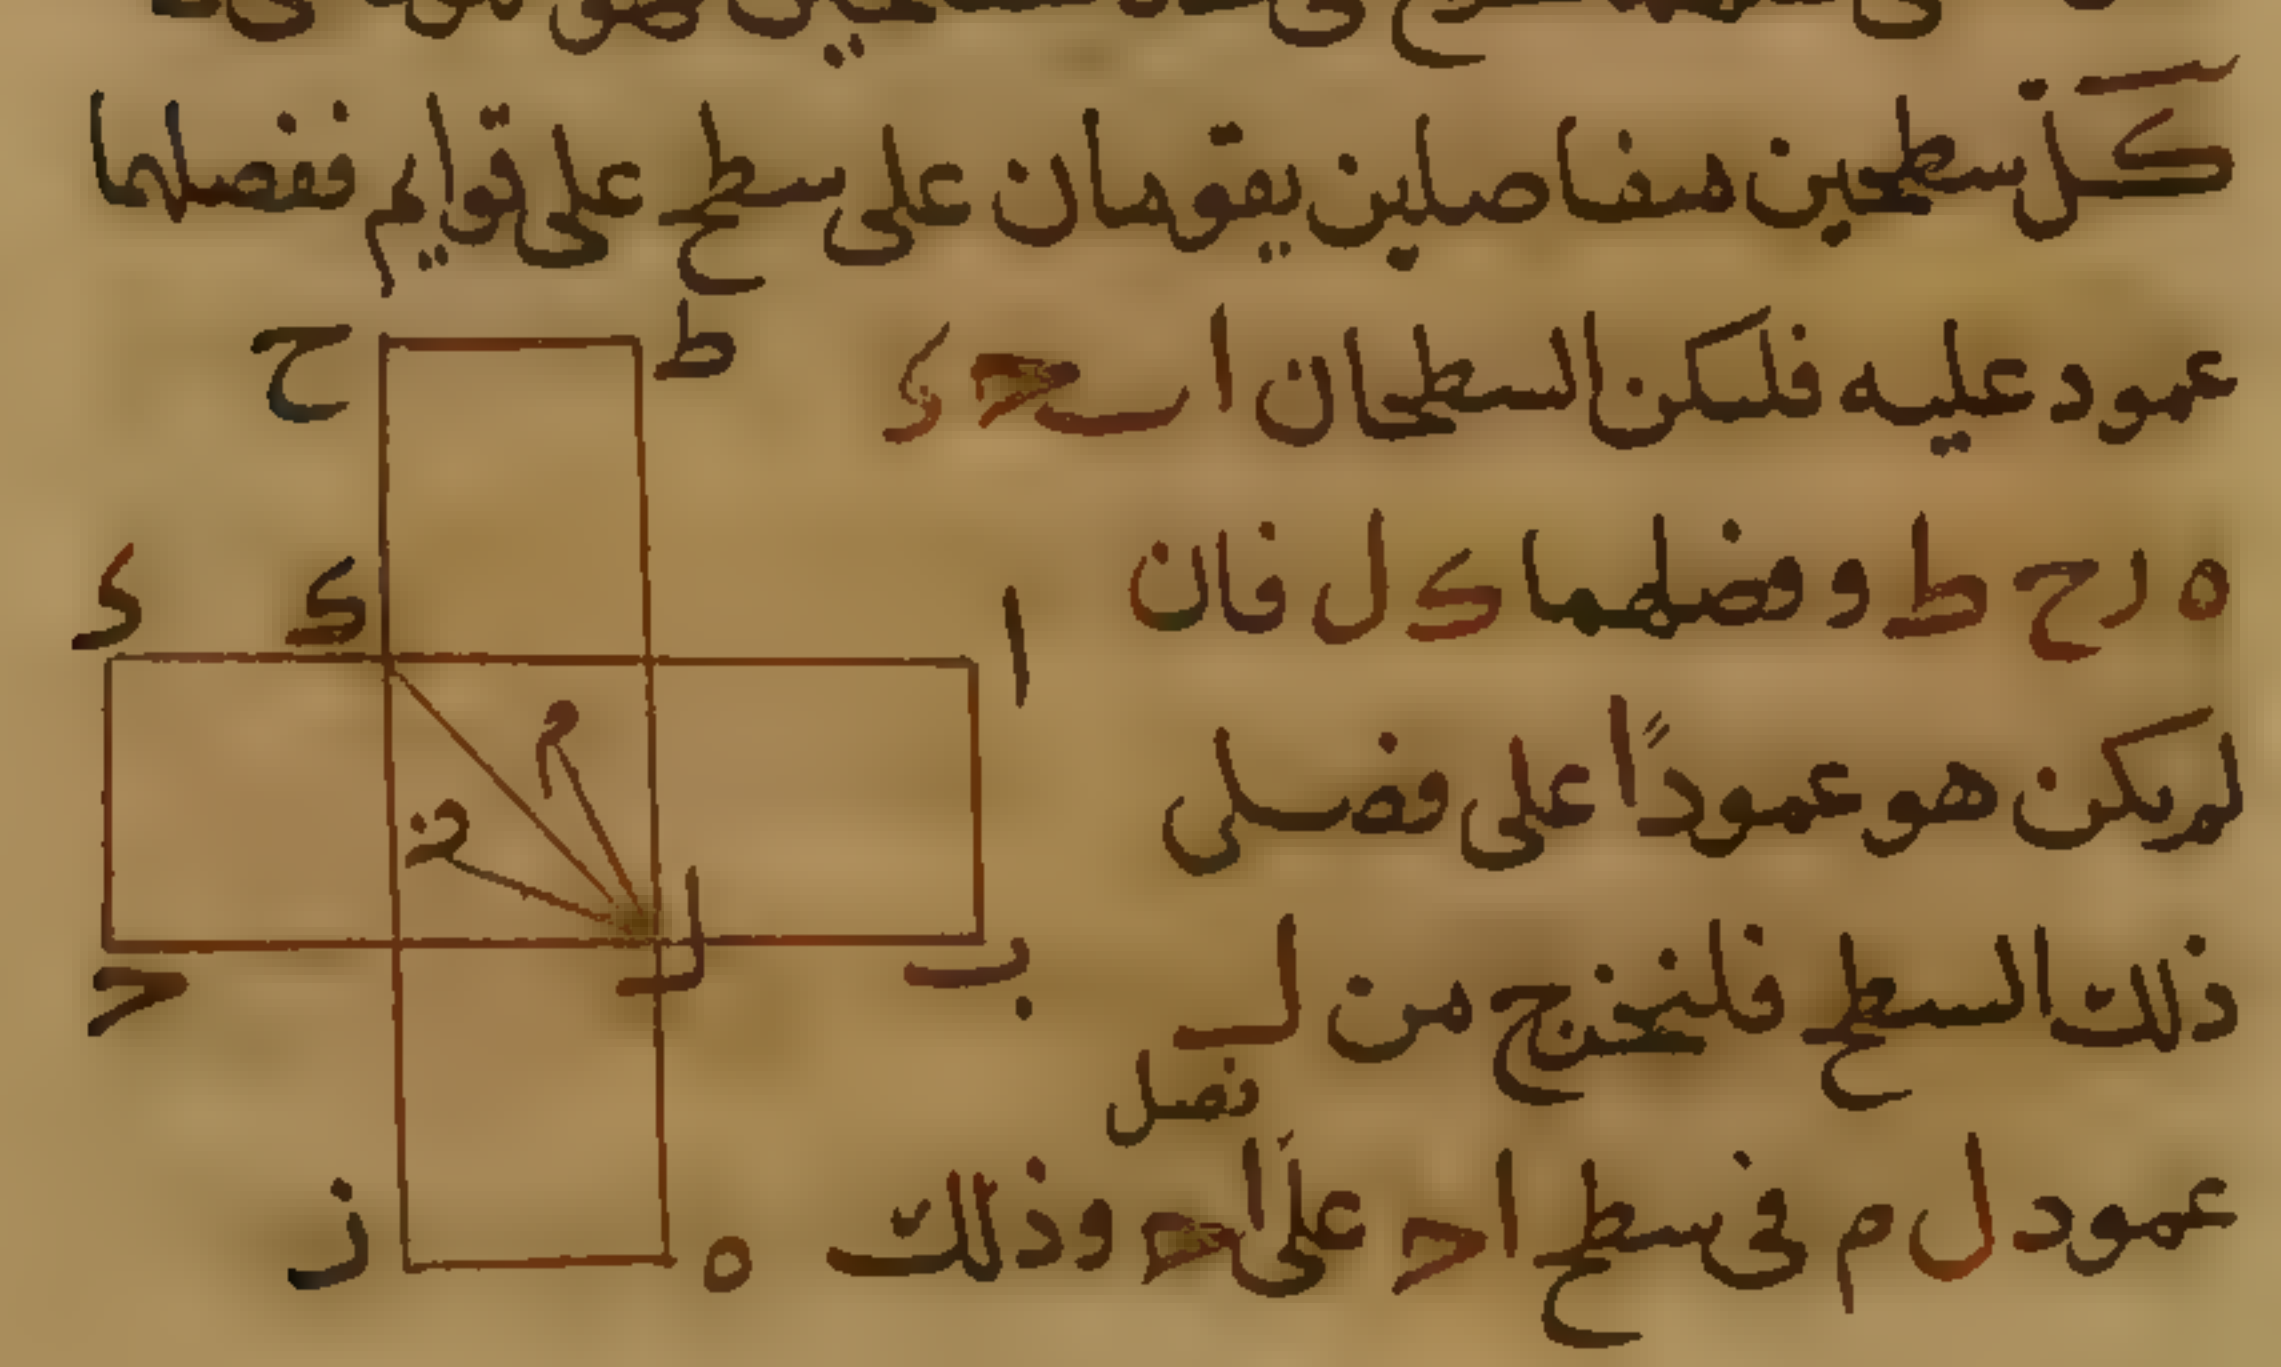 كل سطحين متفاصلين يقومان على سطح على قوايم ففصلهما
عمود عليه فليكن السطحان ا ب ح د
ه ر ح ط و فصلهما ك ل فان
لم يكن هو عمودًا على فصل
ذلك السطح فلنخرج من ل
فصل
عمود ل م فى سطح ا ح على ا ح وذلك
ح
ط
د
ك
ا
م
ن
ل
ب
ح
ز
ه